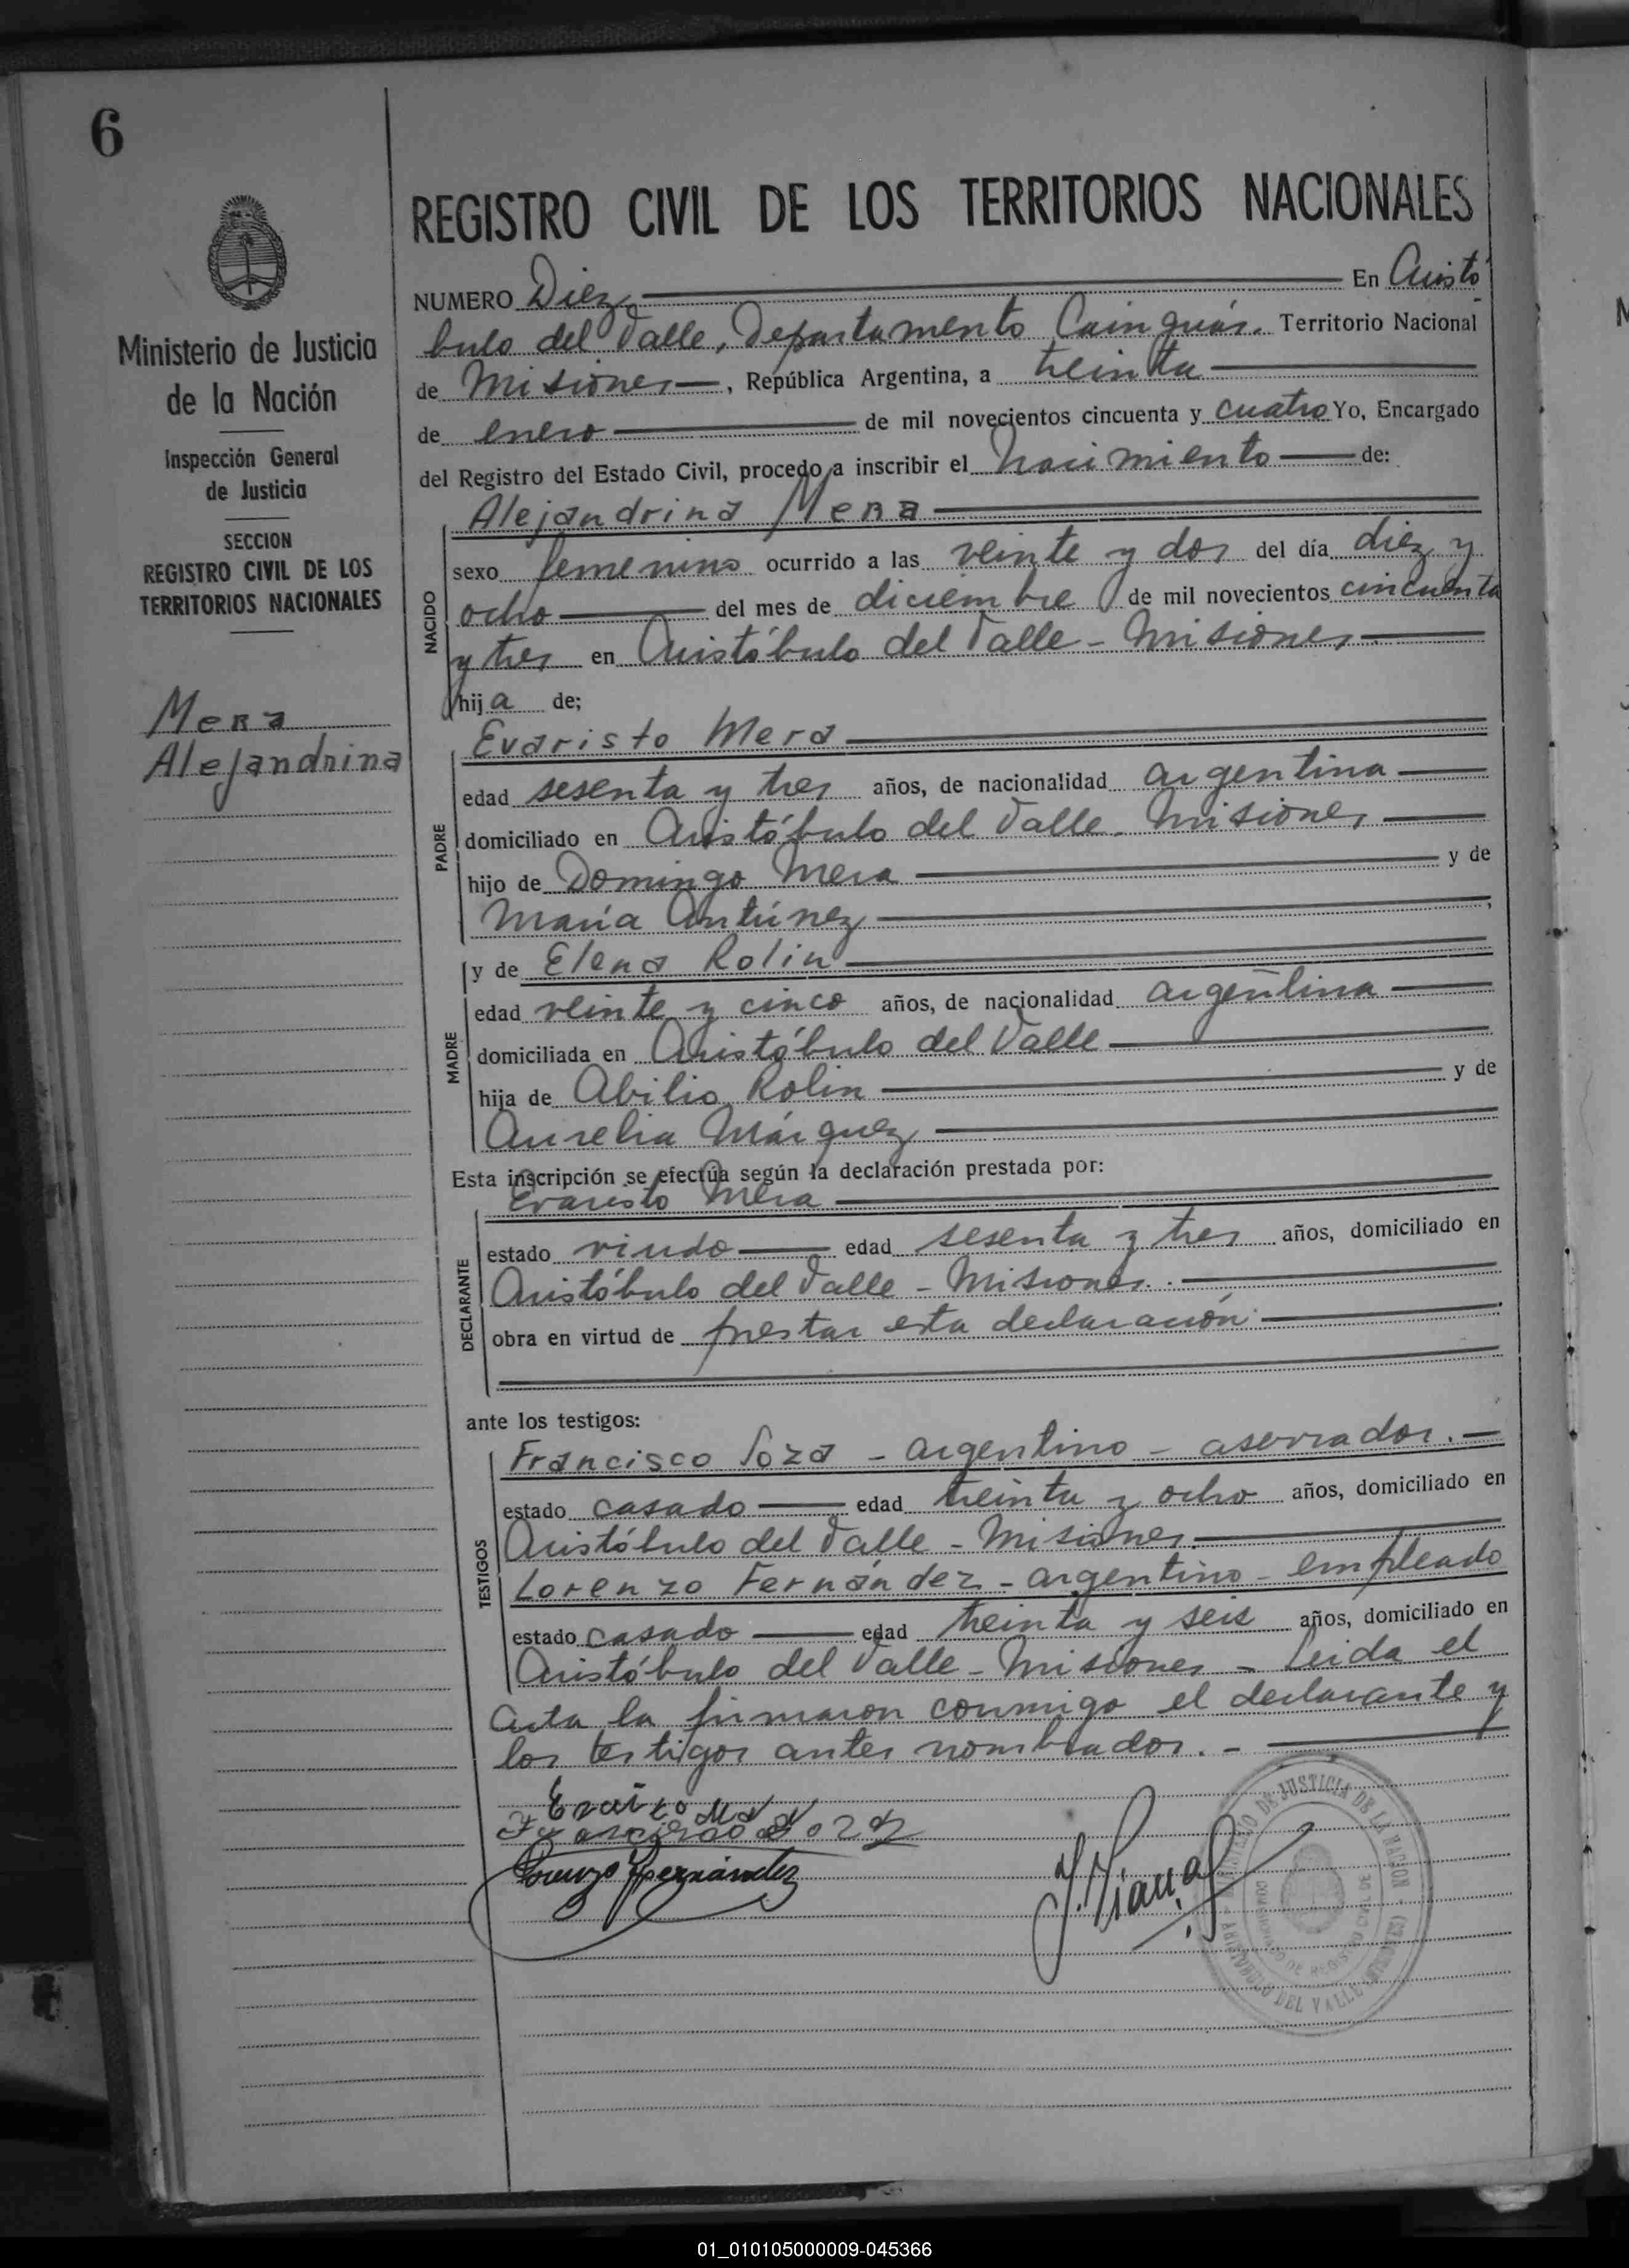 6
Ministerio de Justicia
de la Nación
Inspección General
de Justicia
SECCION
REGISTRO CIVIL DE LOS
TERRITORIOS NACIONALES
Mera
Alejandrina
REGISTRO CIVIL DE LOS TERRITORIOS NACIONALES
NUMERO Diez En Aristó
bulo del Valle, Departamento Cainguás. Territorio Nacional
de Misiones, República Argentina, a treinta
de enero de mil novecientos cincuenta y cuatro Yo, Encargado
del Registro del Estado Civil, procedo a inscribir el nacimiento de:
Alejandrina Mera
NACIDO
sexo femenino ocurrido a las veinte y dos del día diez y
ocho del mes de diciembre de mil novecientos cincuenta
y tres en Aristóbulo del Valle - Misiones
hija de;
Evaristo Mera
PADRE
edad sesenta y tres años, de nacionalidad argentina
domiciliado en Aristóbulo del Valle. Misiones
hijo de Domingo Mera y de
María Antúnez,
y de Elena Rolin
MADRE
edad veinte y cinco años, de nacionalidad argentina
domiciliada en Aristóbulo del Valle
hija de Abilio Rolin y de
Aurelia Márquez
Esta inscripción se efectúa según la declaración prestada por:
Evaristo Mera
DECLARANTE
estado viudo edad sesenta y tres años, domiciliado en
Aristóbulo del Valle - Misiones.
obra en virtud de prestar esta declaración
ante los testigos:
Francisco Soza - argentino - aserrador.
TESTIGOS
estado casado edad treinta y ocho años, domiciliado en
Aristóbulo del Valle - Misiones.
Lorenzo Fernández - argentino - empleado
estado casado edad treinta y seis años, domiciliado en
Aristóbulo del Valle - Misiones - Leida el
acta la firmaron conmigo el declarante y
los testigos antes nombrados. -
Francisco Soza
Lorenzo Fernández
MINISTERIO DE JUSTICIA DE LA NACION
ARISTOBULO DEL VALLE
01_010105000009-045366